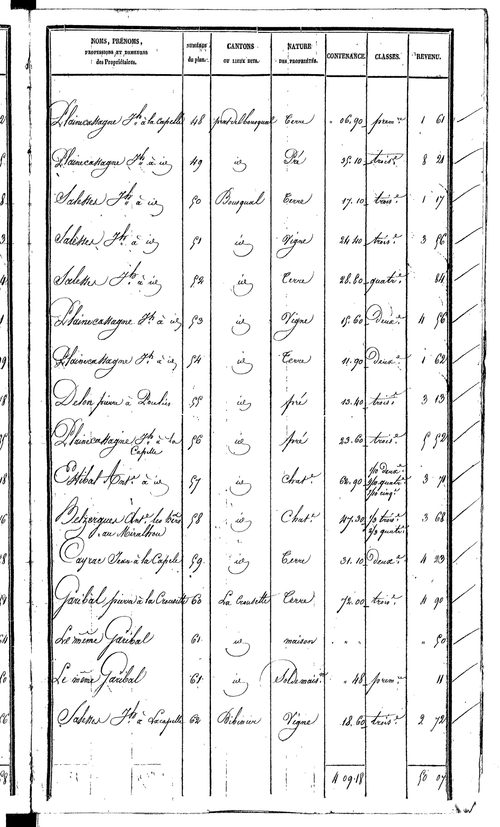 NOMS, PRÉNOMS, PROFESSIONS ET DEMEURES des Propriétaires. NUMÉROS du plan. CANTONS OU LIEUX DITS. NATURE DES PROPRIÉTÉS. CONTENANCE. CLASSES. REVENU.
Plainecassagne Jh à la Capelle 48 prat del bousqual Terre " 06.90 prem.re 1 61
Plainecassagne Jh à id 49 id Pré 35.10 trois.e 8 21
Salesses Jh à id 50 Bousqual Terre 17.10 trois.e 1 17
Salesses Jh à id 51 id Vigne 24.40 trois.e 3 56
Salesses Jh à id 52 id Terre 28.80 quatr.e 84
Plainecassagne Jh à id 53 id Vigne 15.60 deux.e 4 56
Plainecassagne Jh à id 54 id Terre 11.90 deux.e 1 62
Delon pierre à 55 id pré 13.40 trois.e 3 13
Plainecassagne Jh à la Capelle 56 id pré 23.60 trois.e 5 52
Estibal Ant.e à id 57 id Chat.e 62.90 deux.e quatr.e cinq.e 3 71
Betzergues Ant. les hérs au Miralhou 58 id Chat.e 47.30 1/3 trois.e 2/3 quatr.e 3 68
Cayrac Jean à la Capele 59 id Terre 31.10 deux.e 4 23
Garibal pierre à la Creusette 60 La Creusette Terre 72.00 trois.e 4 90
Le même Garibal 61 id maison " " " 50
Le même Garibal 61 id Sol de mais.n " 48 prem.e 11
Salesses Jh à Lacapelle 62 Vigne 18.60 trois.e 2 72
4 09.18 50 07